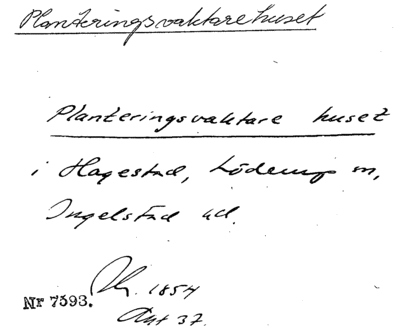 Planteringsvaktarehuset
Planteringsvaktare huset
i Hagestad, Löderup m,
Ingelstad hd.
Nr 7593. 1854
Akt 37.